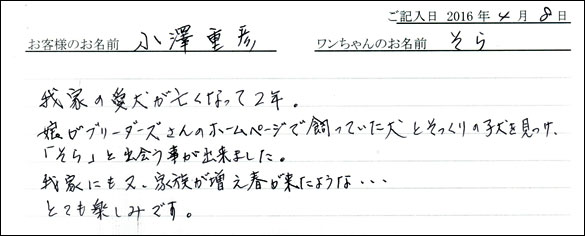 ご記入日 2016年4月8日
お客様のお名前 小澤重彦 ワンちゃんのお名前 そら
我家の愛犬が亡くなって2年。
娘がブリーダーズさんのホームページで飼っていた犬とそっくりの子犬を見つけ、
「そら」と出会う事が出来ました。
我家にも又、家族が増え春が来たような・・・
とても楽しみです。